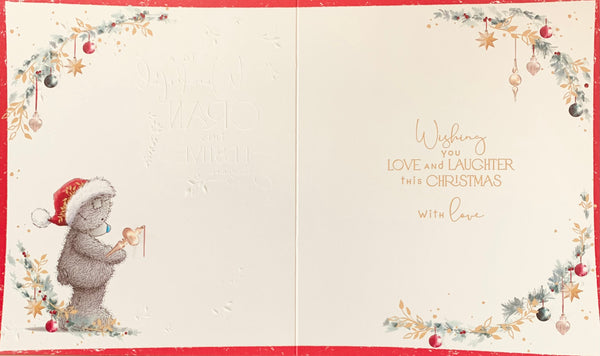 Wishing
YOU
LOVE AND LAUGHTER
THIS CHRISTMAS
WITH love